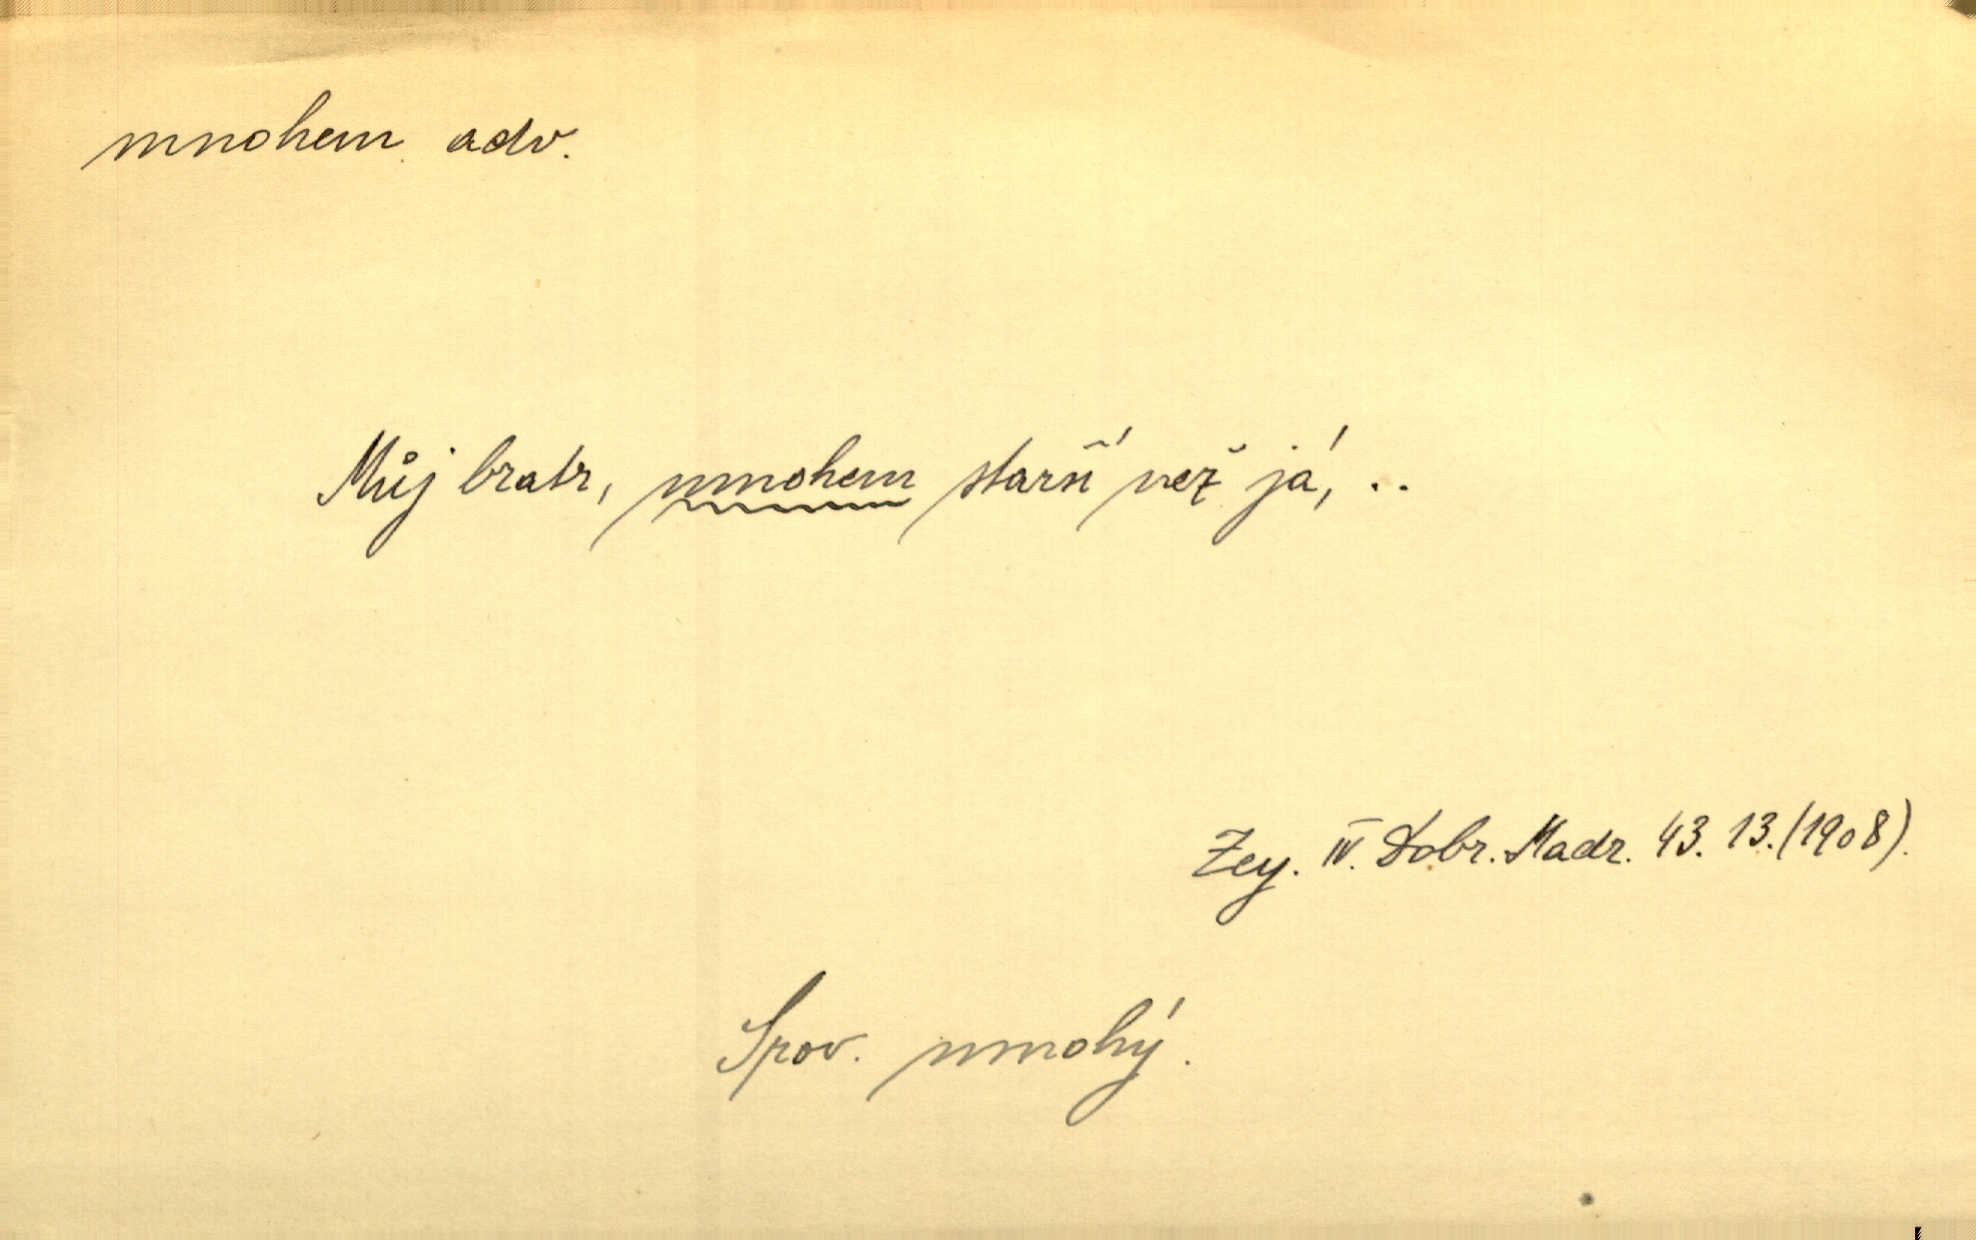 mnohem adv.
Můj bratr, mnohem starší než já, ..
Zey. IV. Dobr. Madr. 43. 13. (1908).
Srov. mnohý.